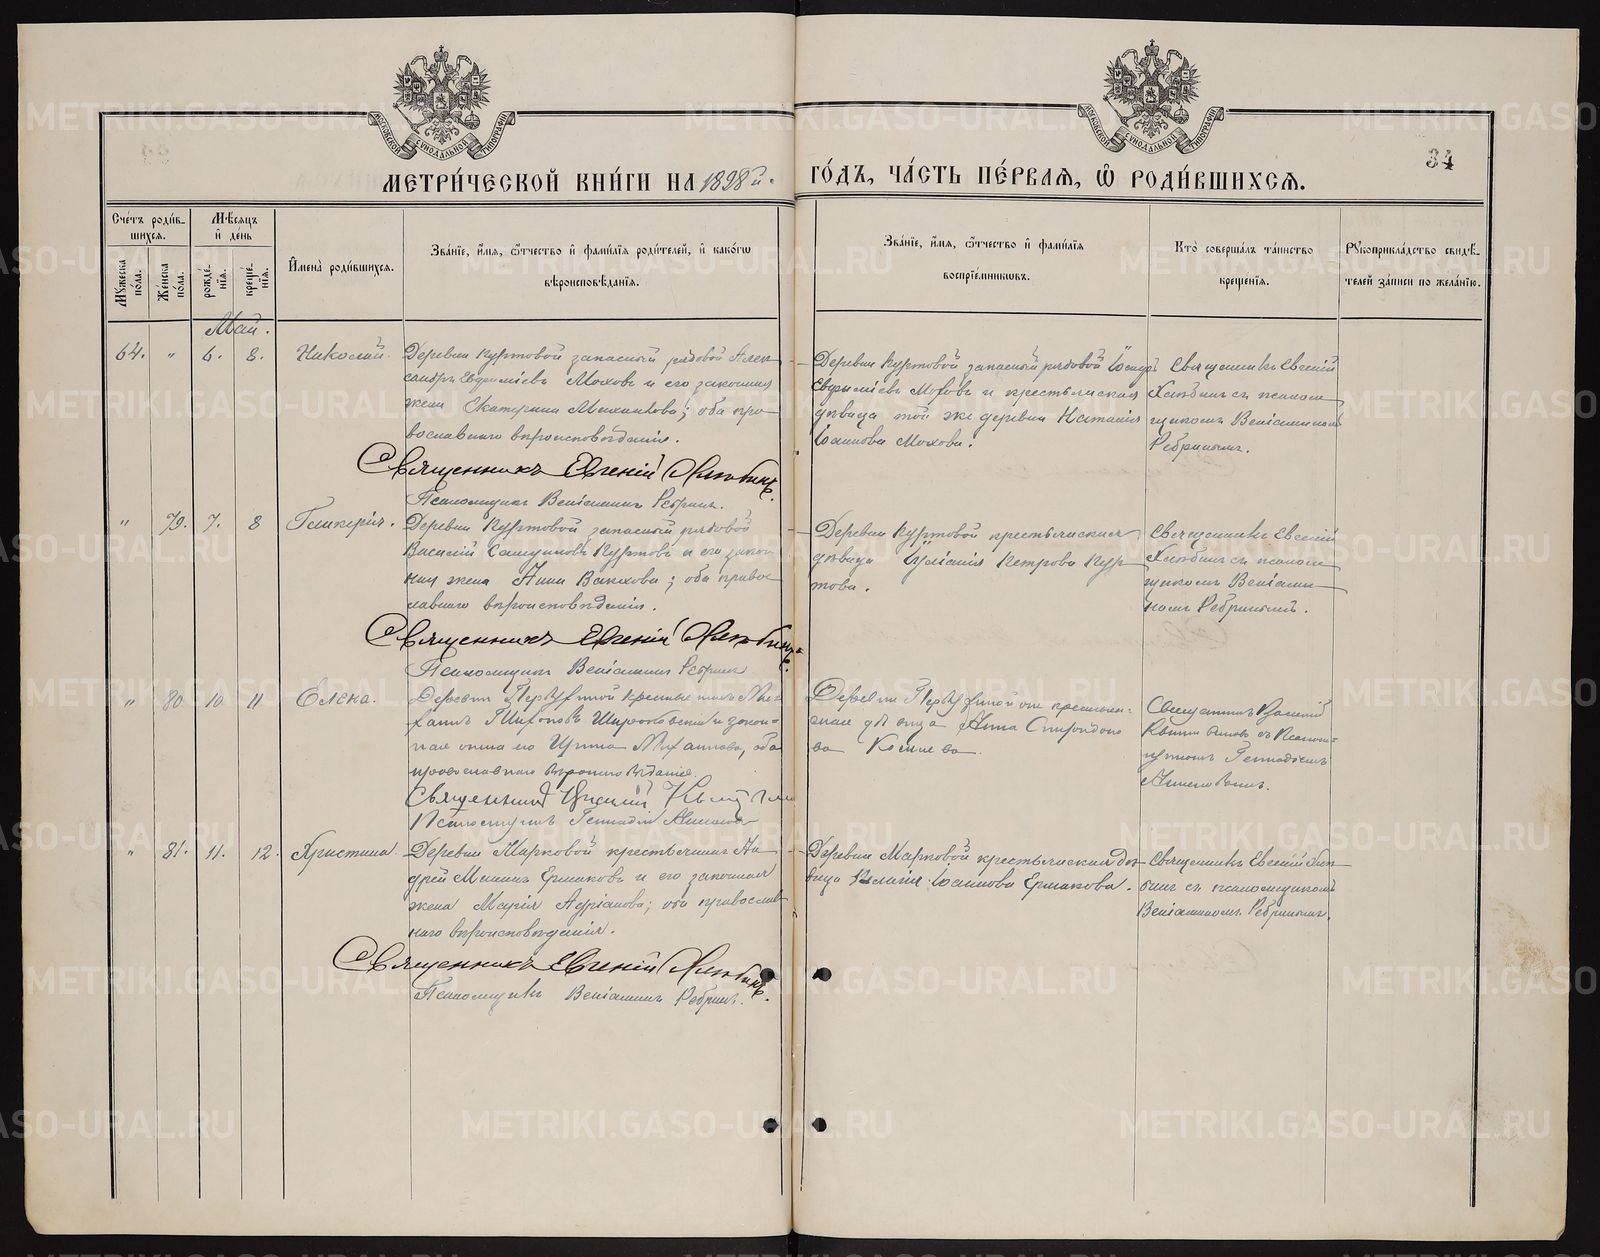 34
МЕТРИ́ЧЕСКОЙ КНИ́ГИ НА 1898й
ГО́ДЪ, ЧА́СТЬ ПЕ́РВАѦ, Ѽ РОДИ́ВШИХСѦ.
Сче́тъ роди́в-
шихсѧ.
Мѣ́сяцъ
и҆ де́нь
Мꙋ́жеска по́ла.
Же́нска по́ла.
рожде́-
нїѧ.
креще́-
нїѧ.
И҆мена̀ роди́вшихсѧ.
Зва́нїе, и҆́мѧ, ѻ҆́тчество и҆ фами́лїѧ роди́телей, и҆ како́гѡ
вѣроисповѣ́данїѧ.
Зва́нїе, и҆́мѧ, ѻ҆́тчество и҆ фами́лїѧ
воспрїе́мникѡвъ.
Кто̀ соверша́лъ та́инство
креще́нїѧ.
Рꙋкоприкла́дство свидѣ́-
телей за́писи по жела́нїю.
Май.
64. " 6. 8. Николай.
Деревни Куртовой запасный рядовой Алек-
сандръ Евфиміевъ Моховъ и его законная
жена Екатерина; оба пра-
вославнаго вѣроисповѣданія.
Священникъ Евгеній Хлѣбинъ.
Псаломщикъ Веніаминъ Ребринъ.
Деревни Куртовой запасный рядовой
Евфиміевъ Моховъ и крестьянская
дѣвица той же деревни Наталія
Іоаннова Мохова.
Священникъ Евгеній
Хлѣбинъ съ псалом-
щикомъ Веніаминомъ
Ребринымъ.
" 79. 7. 8 Гликерія.
Деревни Куртовой запасный рядовой
Василій Куртовъ и его закон-
ная жена Анна; оба правос-
лавнаго вѣроисповѣданія.
Священникъ Евгеній Хлѣбинъ.
Псаломщикъ Веніаминъ Ребринъ
Деревни Куртовой крестьянская
дѣвица Іуліанія Петрова Кур-
това.
Священникъ Евгеній
Хлѣбинъ съ псалом-
щикомъ Веніами-
номъ Ребринымъ.
" 80 10. 11 Елена.
Деревни крестьянинъ Ми-
хаилъ и закон-
ная жена его Ирина Михаилова, оба
православнаго вѣроисповѣданія.
Священникъ
Псаломщикъ Геннадій
Деревни крестьян-
ская дѣвица Анна Спиридоно-
ва
Священникъ
съ Псалом-
щикомъ Геннадіемъ
" 81. 11. 12. Христина.
Деревни Марковой крестьянинъ Ан-
дрей Ермаковъ и его законная
жена Марія Адріанова; оба православ-
наго вѣроисповѣданія.
Священникъ Евгеній Хлѣбинъ.
Псаломщикъ Веніаминъ Ребринъ.
Деревни Марковой крестьянская дѣ-
вица Іоаннова Ермакова.
Священникъ Евгеній Хлѣ-
бинъ съ псаломщикомъ
Веніаминомъ Ребринымъ.
METRIKI.GASO-URAL.RU